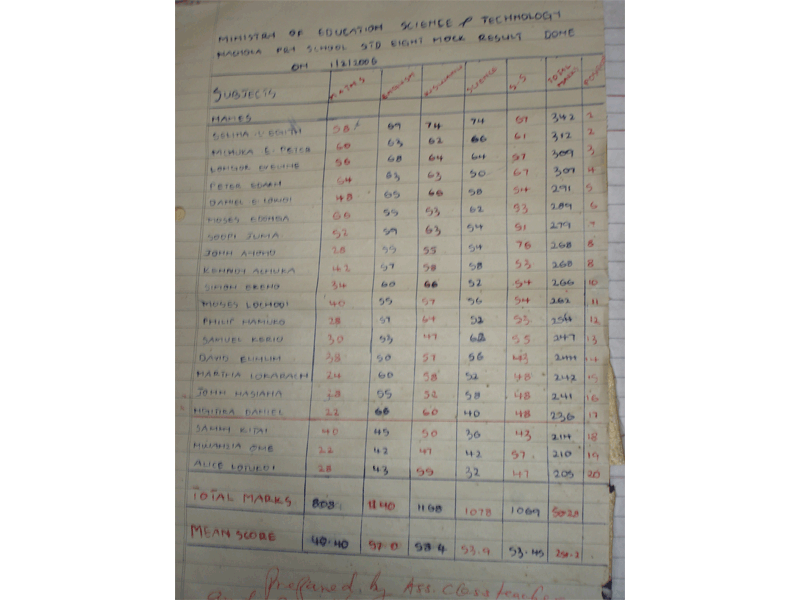 MINISTRY OF EDUCATION SCIENCE & TECHNOLOGY
PRY SCHOOL STD EIGHT MOCK RESULT DONE
ON 1/2/2006
SUBJECTS MATHS ENGLISH KISWAHILI SCIENCE S.S TOTAL MARKS
NAMES
SELINA EDITH 58 69 74 74 67 342 2
ACHUKA E. PETER 60 63 62 66 61 312 2
EVELINE 56 68 64 64 57 309 3
PETER 64 63 63 50 67 307 4
DANIEL 48 65 66 58 54 291 5
MOSES 66 55 53 62 53 289 6
JUMA 52 59 63 54 51 279 7
JOHN 28 55 55 54 76 268 8
KENNDY ACHUKA 42 57 58 58 53 268 8
SIMON EKENO 34 60 66 52 54 266 10
MOSES LOCHODI 40 55 57 56 54 262 11
PHILIP 28 57 64 52 53 254 12
SAMUEL KERIO 30 53 47 62 55 247 13
DAVID 38 50 57 56 43 244 14
MARTHA 24 60 58 52 48 242 15
JOHN 28 55 52 58 48 241 16
DANIEL 22 66 60 40 48 236 17
SAMMY 40 45 50 36 43 214 18
22 42 47 42 57 210 19
ALICE 28 43 55 32 47 205 20
TOTAL MARKS 808 1140 1168 1078 1069
MEAN SCORE 40.40 57.0 58.4 53.9 53.45
Prepared by Ass. Class teacher